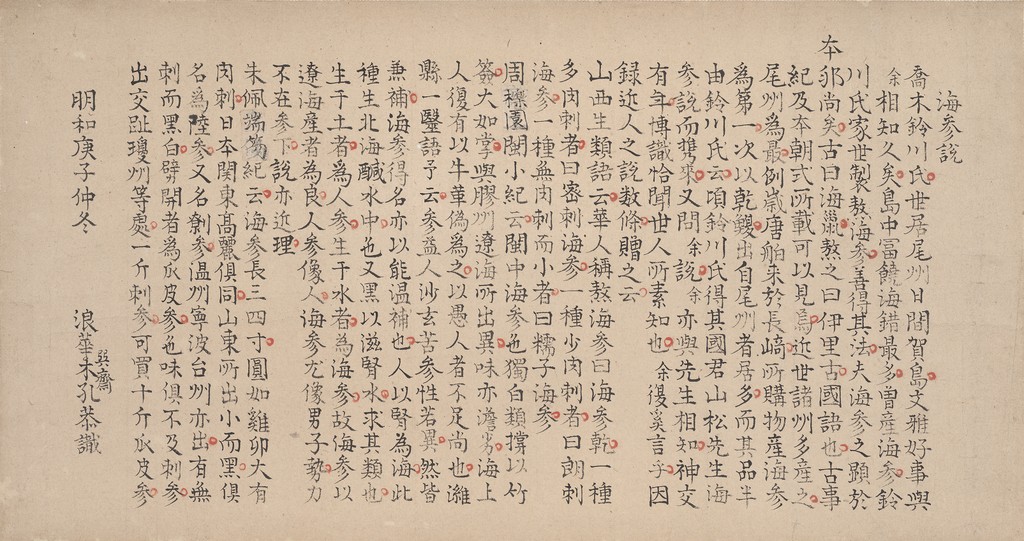 海参説
喬木鈴川氏世居尾州日間賀島文雅好事與
余相知久矣島中冨饒海錯最多曽産海参鈴
川氏家世製熬海参善得其法夫海参之顕於
本邦尚矣古曰海䑕熬之曰伊里古國語也古事
紀及本朝式所載可以見焉近世諸州多産之
尾州為最例歳唐舶来於長﨑所購物産海参
為第一次以乾鰒出自尾州者居多而其品半
由鈴川氏云頃鈴川氏得其國君山松先生海
参説而携來又問余説余亦與先生相知神交
有年博識恰聞世人所素知也余復奚言乎因
録近人之説数條贈之云
山西生類語云華人稱熬海参曰海参乾一種
多肉刺者曰宻刺海参一種少肉刺者曰朗刺
海参一種無肉刺而小者曰糯子海参
周櫟園閩小紀云閩中海参色獨白類撐以竹
簽大如掌與膠州遼海所出異味亦澹劣海上
人復有以牛革偽為之以愚人者不足尚也濰
縣一毉語予云参益人沙玄苦参性若異然皆
兼補海参得名亦以能温補也人以腎為海此
種生北海鹹水中也又黒以滋腎水求其類也
生于土者為人参生于水者為海参故海参以
遼海産者為良人参像人海参尤像男子勢力
不在参下説亦近理
朱佩端偶紀云海参長三四寸圓如雞卵大有
肉刺日本関東髙麗俱同山東所出小而黒俱
名為陸参又名劊参温州寧波台州亦出有無
刺而黒白劈開者為瓜皮参色味俱不及刺参
出交趾瓊州等處一斤刺参可買十斤瓜皮参
明和庚子仲冬
浪華木孔恭識
巽齋